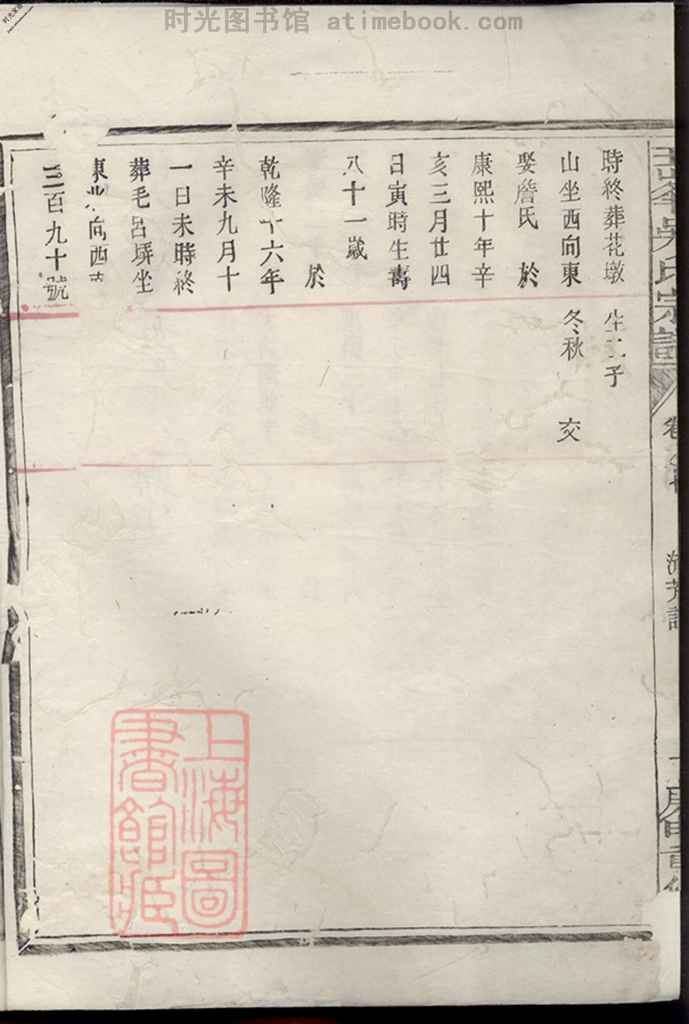 时光图书馆 atimebook.com
時終葬花墩 生二子
山坐西向東 冬秋 交
娶詹氏 於
康熙十年辛
亥三月廿四
日寅時生壽
八十一歲
於
乾隆十六年
辛未九月十
一日未時終
葬毛呂塝坐
東北向西南
三百九十號
吳氏宗譜
上海圖
書館藏